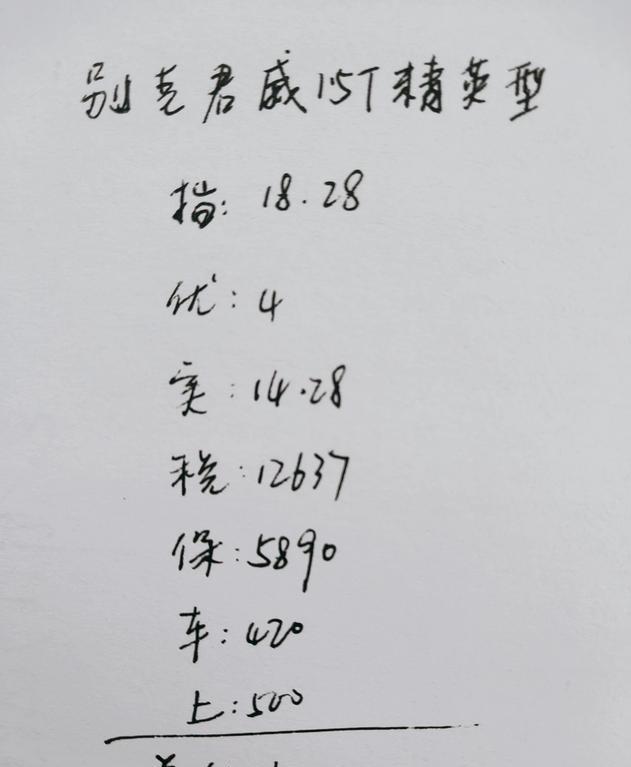 别克君威15T精英型
指: 18.28
优: 4
实: 14.28
税: 12637
保: 5890
车: 420
上: 500